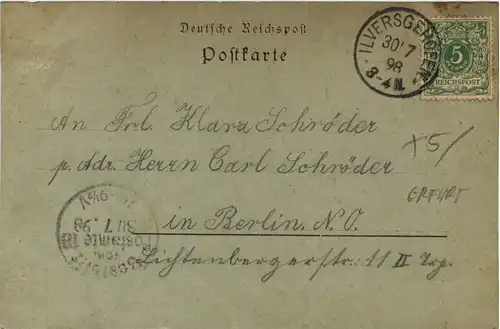 Deutsche Reichspost
Postkarte
ILVERSGEHOFEN
30 7
98
3-4 N.
5
REICHSPOST
An Frl. Klara Schröder
p. Adr. Herrn Carl Schröder
in Berlin. N.O.
Lichtenbergerstr. 11 II Trp.
+5/
ERFURT
30.7.98
Postamte 18